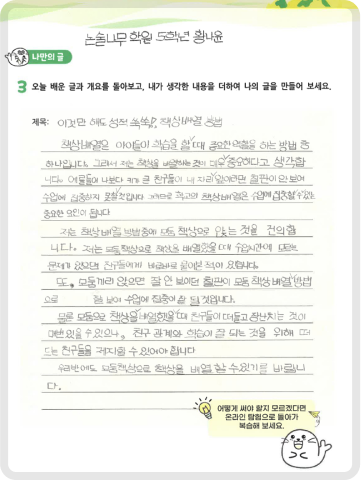 논술나무 학원 5학년 황나윤
나만의 글
3 오늘 배운 글과 개요를 돌아보고, 내가 생각한 내용을 더하여 나의 글을 만들어 보세요.
제목: 이것만 해도 성적 쑥쑥!, 책상 배열 방법
책상 배열은 아이들이 학습을 할 때 중요한 역할을 하는 방법 중
하나입니다. 그래서 저는 책상을 배열하는 것이 더욱 중요하다고 생각합
니다. 예를들어 나보다 키가 큰 친구들이 내 자리 앞에 있으면 칠판이 안 보여
수업에 집중하지 못할 것입니다. 그러므로 학교의 책상 배열은 수업에 집중할 수 있는
중요한 요인이 됩니다
저는 책상 배열 방법 중에 모둠 책상으로 앉는 것을 건의합
니다. 저는 모둠 책상으로 책상을 배열했을 때 수업시간에 모르는
문제가 있으면 친구들에게 바로바로 물어본 적이 있습니다.
또, 모둠끼리 앉으면 잘 안 보이던 칠판이 모둠 책상 배열 방법
으로 잘 보여 수업에 집중이 잘 될 것입니다.
물론 모둠으로 책상을 배열했을 때 친구들이 떠들고 장난치는 것이
있을 수 있으나, 친구 관계와 학습이 잘 되는 것을 위해 떠
드는 친구들을 제지할 수 있어야 합니다
우리반에도 모둠책상으로 책상을 배열 할 수 있기를 바랍니
다.
어떻게 써야 할지 모르겠다면
온라인 탐험으로 돌아가
복습해 보세요.